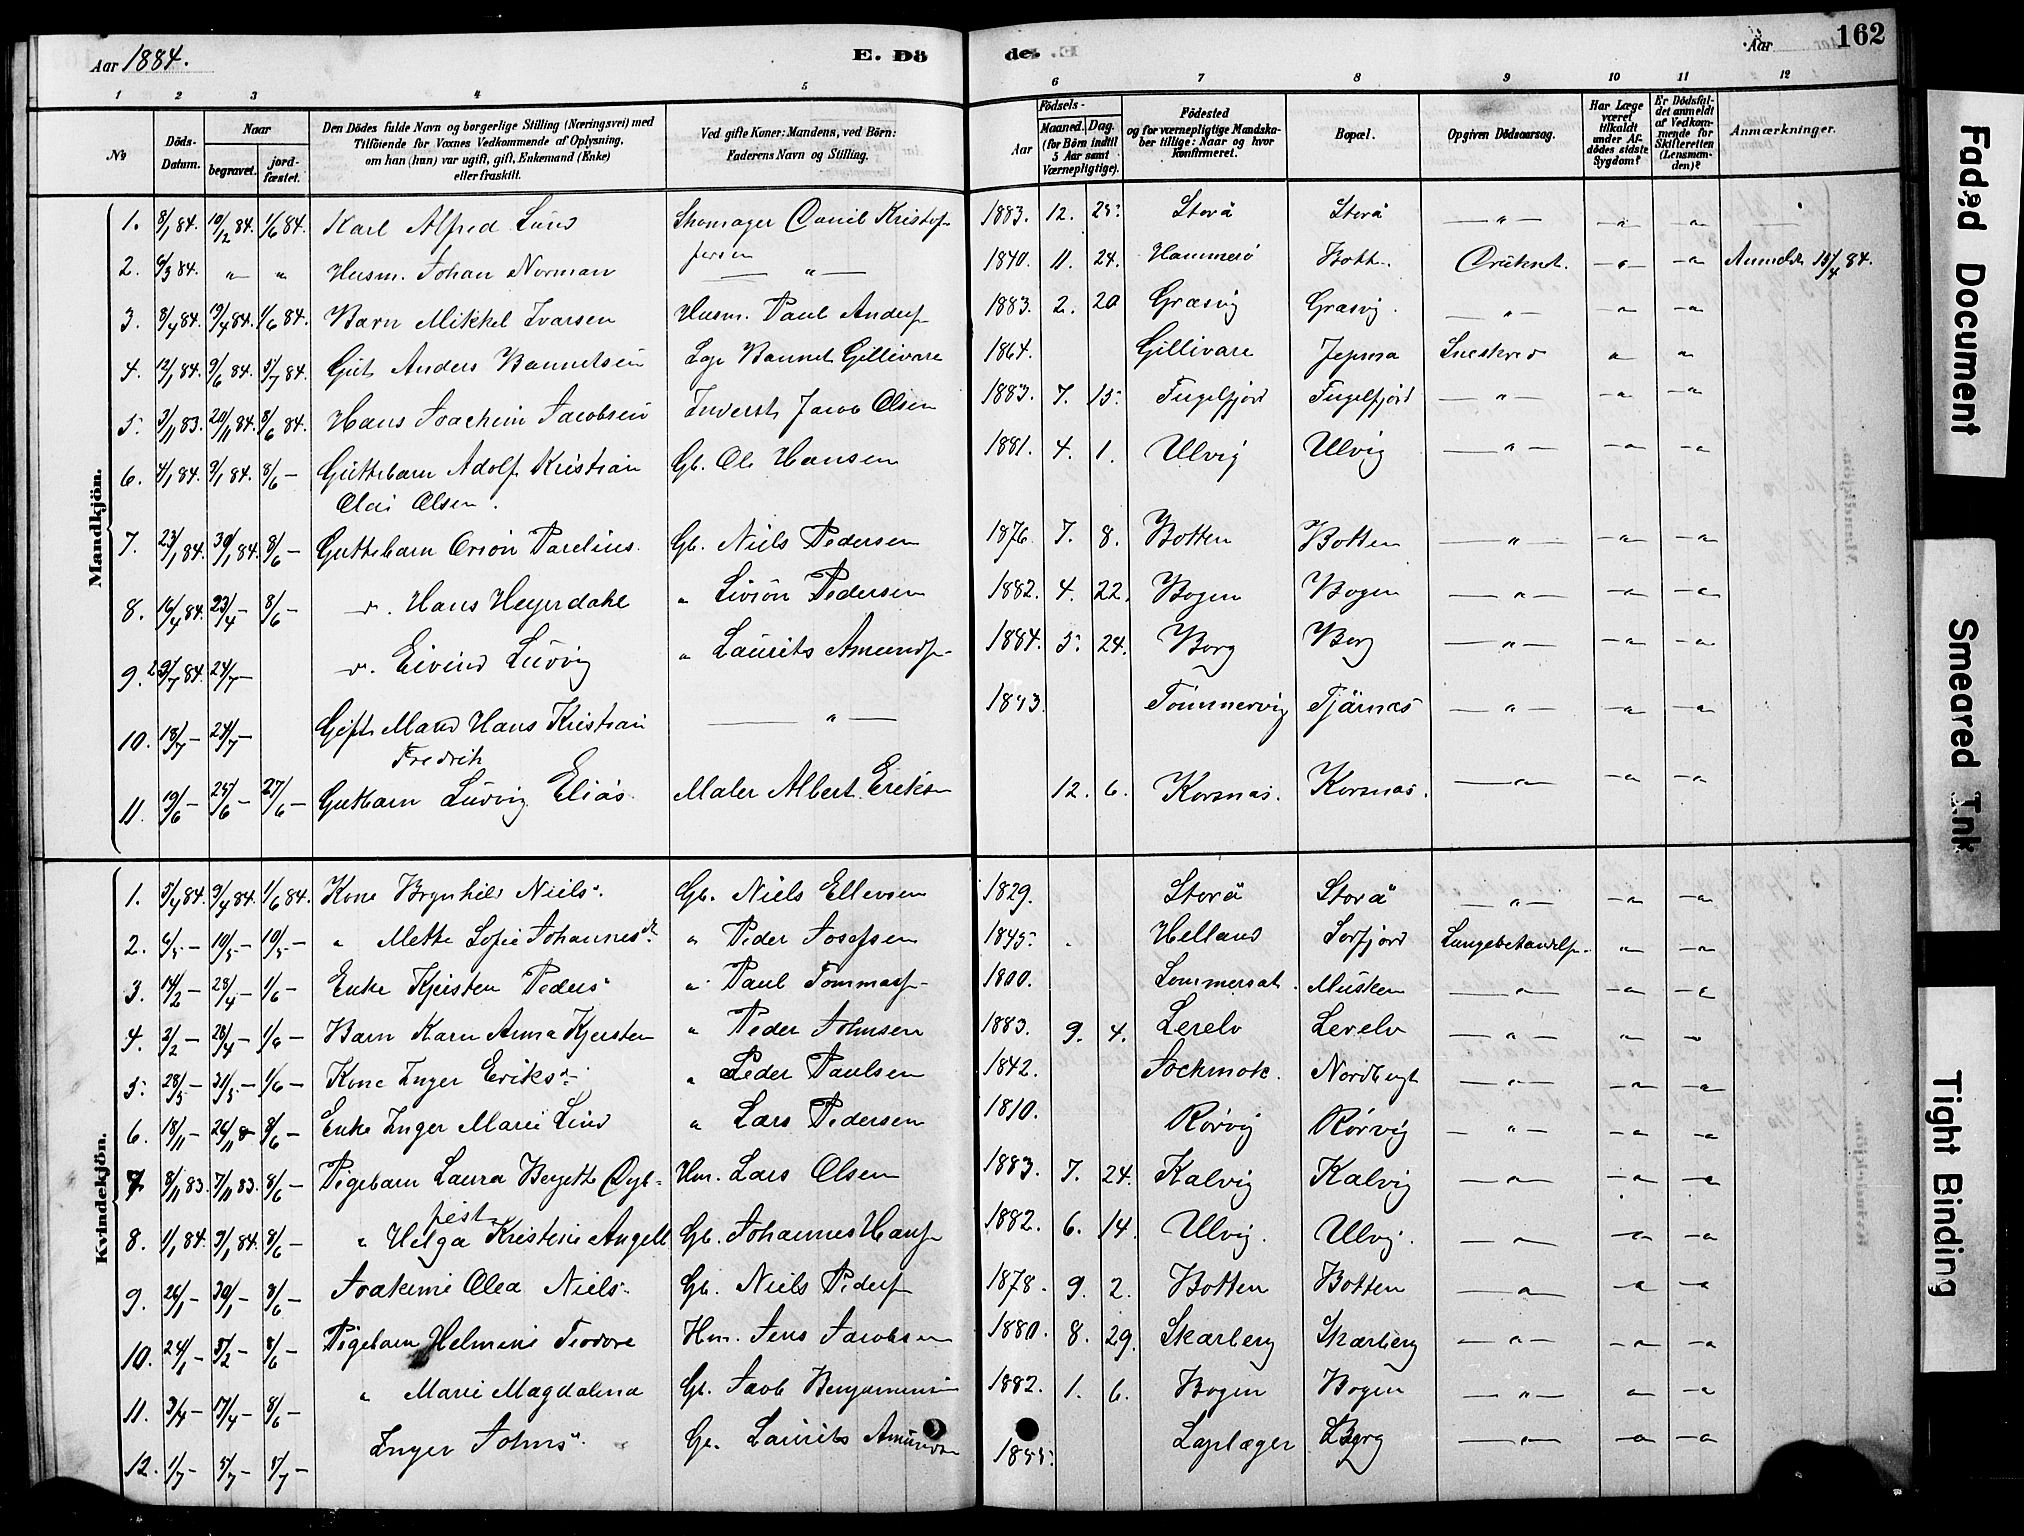 Aar 1884.
E. Dö
des.
Aar
162
1 2 3 4 5 6 7 8 9 10 11 12
No
Döds-Datum.
Naar
begravet.
jordfæstet.
Den Dödes fulde Navn og borgerlige Stilling (Næringsvei) med
Tilföiende for Voxnes Vedkommende af Oplysning,
om han (hun) var ugift, gift, Enkemand (Enke)
eller fraskilt.
Ved gifte Koner: Mandens, ved Börn:
Faderens Navn og Stilling.
Aar
Födsels-
Maaned. Dag.
(for Börn indtil
5 Aar samt
Værnepligtige).
Födested
og for værnepligtige Mandska-
ber tillige: Naar og hvor
konfirmeret.
Bopæl.
Opgiven Dödsaarsag.
Har Læge
været
tilkaldt
under Af-
dödes sidste
Sygdom?
Er Dödsfal-
det anmeldt
af Vedkom-
mende for
Skifteretten
(Lensman-
den)?
Anmærkninger.
Mandkjön.
1. 8/1 84. 10/12 84. 1/6 84. Karl Alfred Lund Skomager Daniel Kristof- 1883. 12. 25. Storå Storå — " — — " — "
fersen
2. 6/3 84. " " Husm. Johan Norman — " — 1840. 11. 24. Hammerö Bott. Druknet. — " — — " Anmeldt 15/4 84.
3. 8/4 84. 19/4 84. 1/6 84. Barn Mikkel Ivarsen Husm. Paul Anders 1883. 2. 20 Græsvig Græsvig. — " — — " — — "
4. 12/1 84. 9/6 84. 5/7 84. Gut Anders Bannetsen Lap Bannet Gillivare 1864. Gillivare Jepma Sneskred " "
5. 3/11 83. 20/11 84. 8/6 84. Hans Joachim Jacobsen Inderst Jacob Olsen 1883. 7. 15. Fugelfjord Fugelfjord — " — — " — "
6. 4/1 84. 9/1 84. 8/6 — Guttebarn Adolf Kristian Gb. Ole Hansen 1881. 4. 1. Ulvig Ulvig — " — — " — — "
Olai Olsen.
7. 23/1 84. 30/1 84. 8/6 — Guttebarn Orion Parelius. Gb. Niels Pedersen 1876. 7. 8. Botten Botten — " — — " — — "
8. 16/4 84. 23/4 — 8/6 — d. Hans Heyerdahl " Sivion Pedersen 1882. 4. 22. Bogen Bogen — " — — " — — "
9. 23/7 84. 24/7 — d. Eivind Ludvig " Laurits Amunds 1884. 5. 24. Borg Borg — " — — " — — "
10. 18/7 — 24/7 — Gift Mand Hans Kristian — " — 1843. Tømmervig Tjärnes — " — — " — — "
Fredrik
11. 19/6 — 25/6 — 27/6 — Gutbarn Ludvig Elias. Maler Albert Eriks 12. 6. Korsnas. Korsnas. — " — — " — — "
Kvindekjön.
1. 5/4 84. 9/4 84. 1/6 84. Kone Brynhild Niels. Gb. Niels Ellevsen 1829. Storå Storå — " — — " — "
2. 6/5 — 10/5 — 10/5 — " Mette Sofie Johannesd. " Peder Josefsen 1845. Helland Sorfjord Lungebetændels. " — "
3. 14/2 — 28/4 — 1/6 — Enke Kjersten Peders " Paul Tommas 1800. Sommersat. Musken — " — — " — — "
4. 2/2 — 28/4 — 1/6 — Barn Karn Anna Kjersten " Peder Johnsen 1883. 9. 4. Lerelv Lerelv — " — — " — "
5. 28/5 — 31/5 — 1/6 — Kone Inger Eriks. " Peder Paulsen 1842. Jockmok. Nordbugt — " — — " — — "
6. 18/11 — 26/11 8/6 — Enke Inger Marie Lind " Lars Pedersen 1810. Rörvig Rörvig — " — — " — — "
7. 8/11 83. 7/11 83. 8/6 — Pigebarn Laura Bergette Dyb- Hm. Lars Olsen 1883. 7. 24. Kalvig Kalvig — " — — " — — "
fest
8. 1/1 84. 9/1 84. 8/6 — " Helga Kristine Angell Gb. Johannes Hans 1882. 6. 14. Ulvig. Ulvig. — " — — " — — "
9. 26/1 — 30/1 — 8/6 — Joakime Olea Niels. Gb. Niels Peders 1878. 9. 2. Botten Botten — " — — " — "
10. 24/1 — 5/2 — 8/6 — Pigebarn Helmine Teodore Hm. Jens Jacobsen 1880. 8. 29. Skarberg Skarberg — " — — " — — "
11. 3/4 — 17/4 — 8/6 — " Marie Magdalena Gb. Jacob Benjaminsen 1882. 1. 6. Bogen Bogen — " — — " — "
12. 1/7 — 5/7 — 5/7 — Inger Johns. Gb. Laurits Amunds 1855. Laplæger Borg — " — — " — "
Faded Document
Smeared Ink
Tight Binding